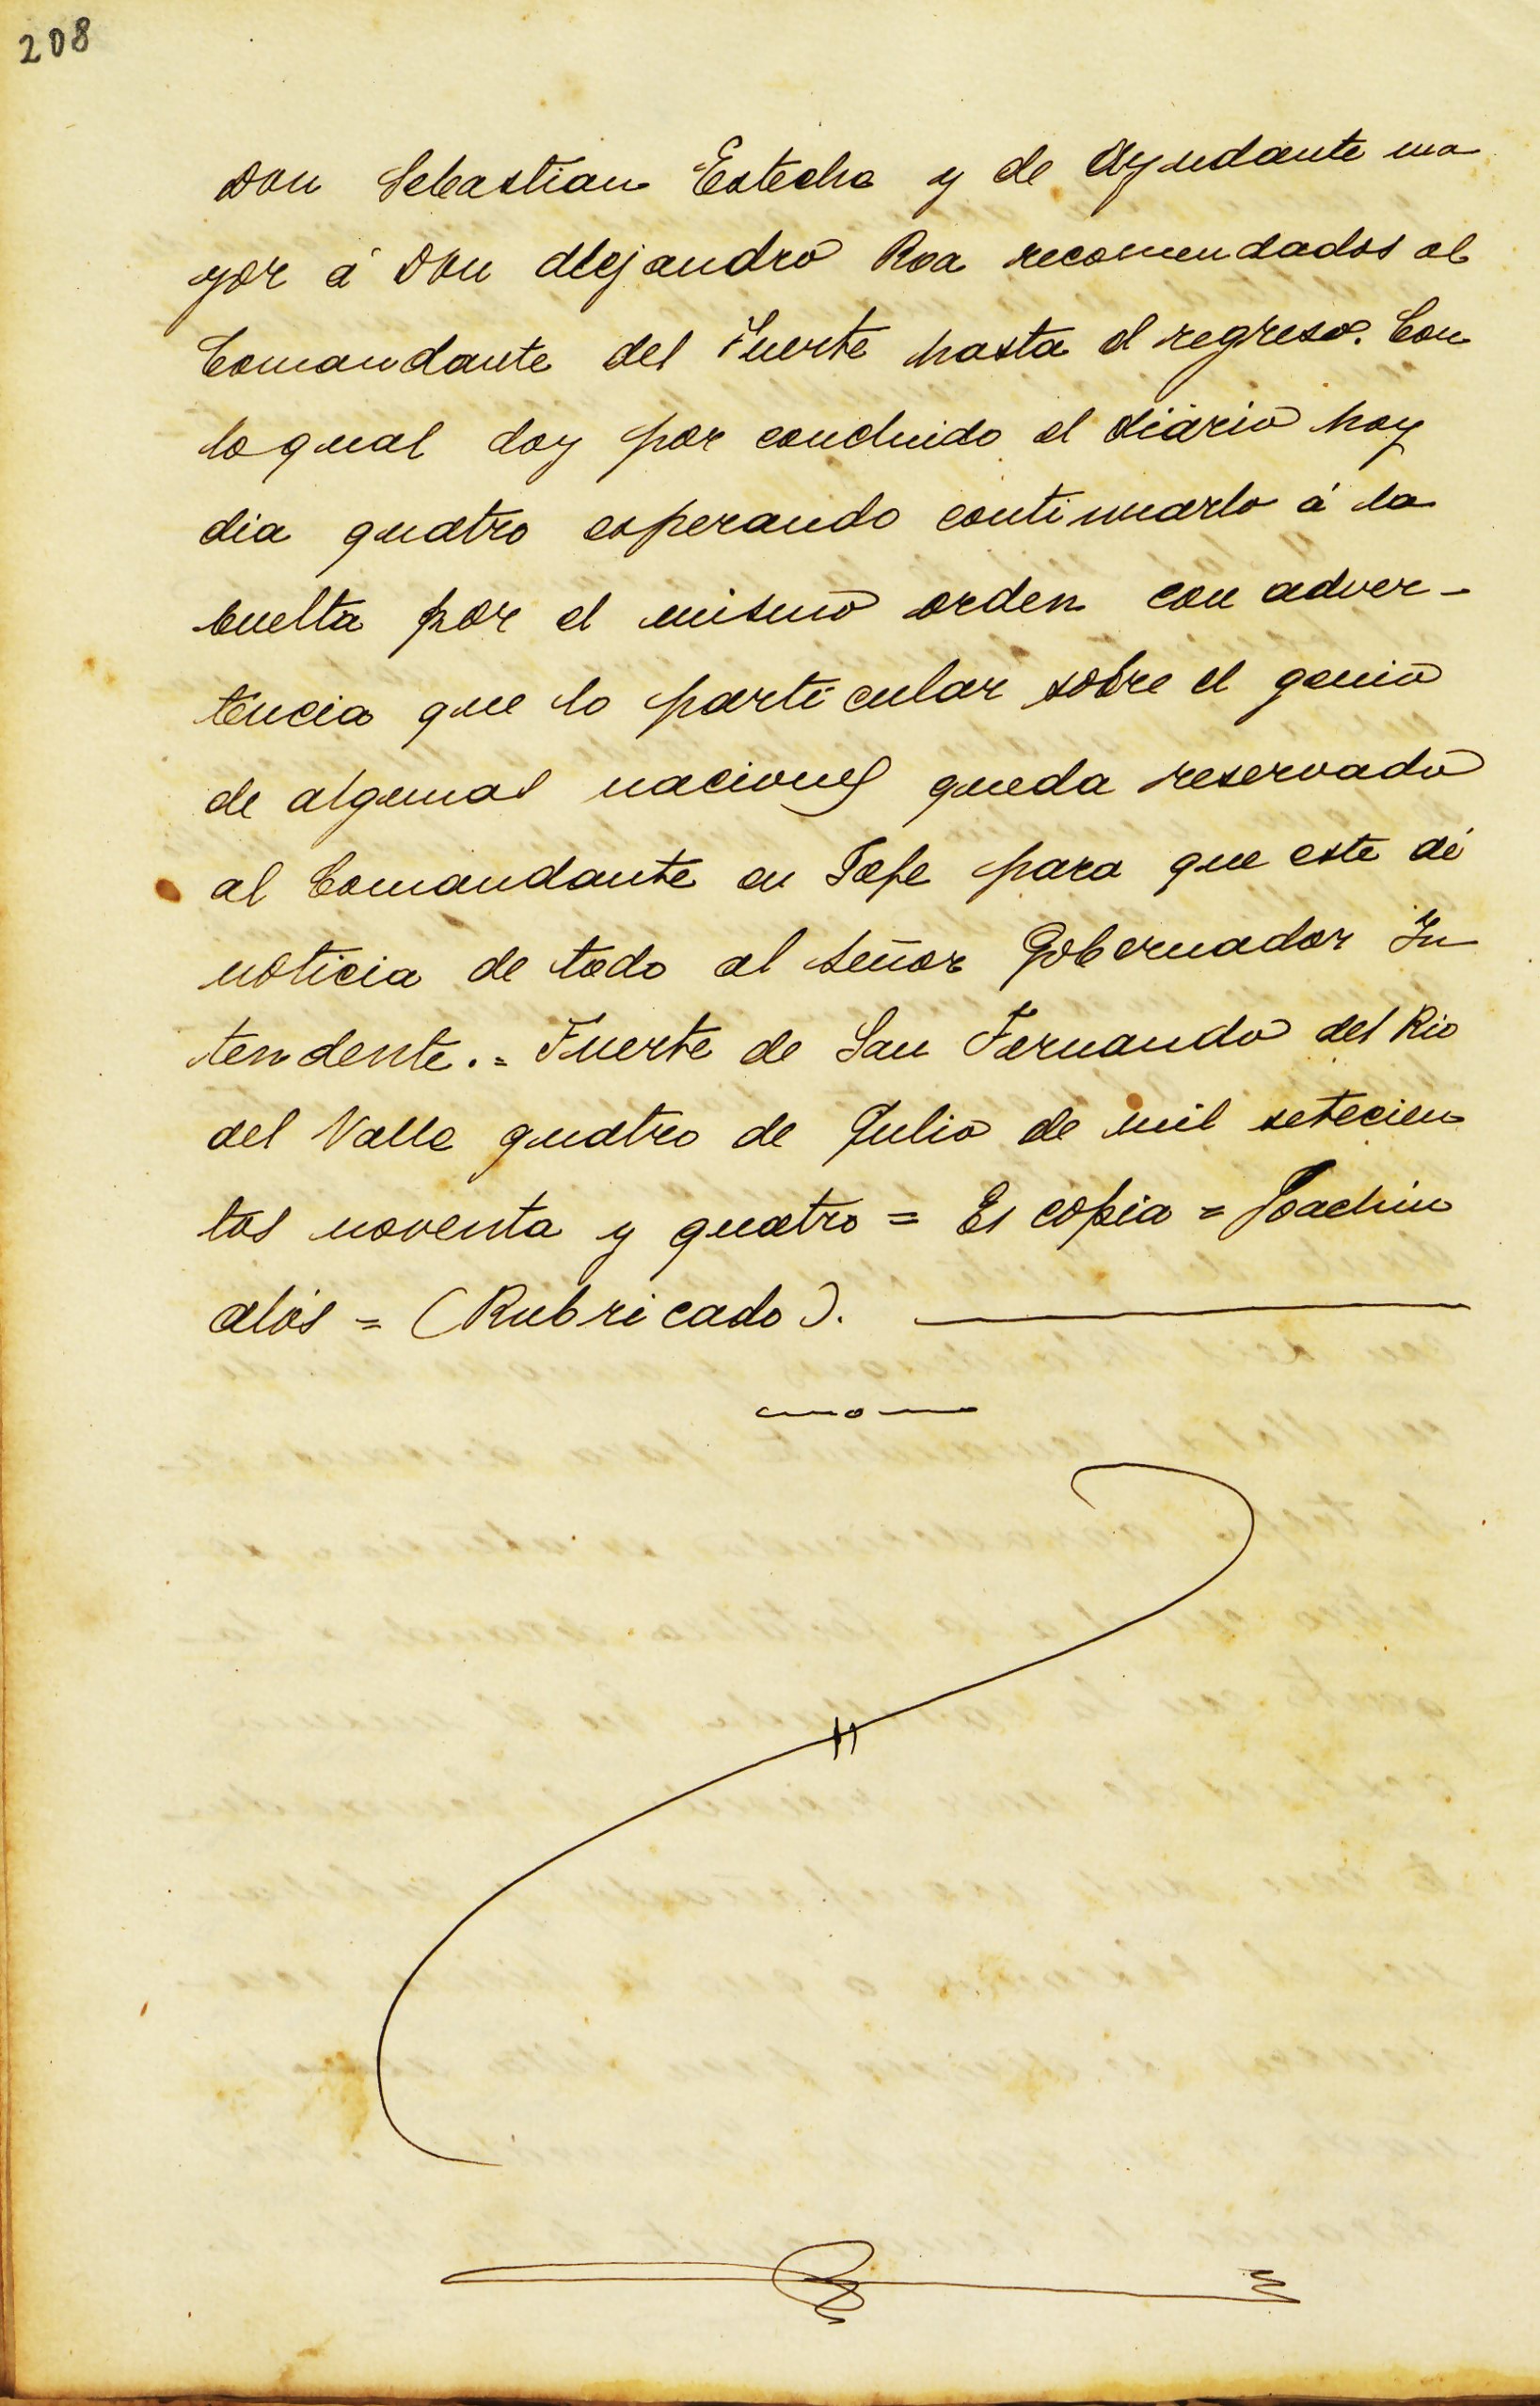 208
Don Sebastian Esteche y de Ayudante ma
yor á Don Alejandro Roa recomendados al
Comandante del Fuerte hasta el regreso. Con
loqual doy por concluido el diario hoy
dia quatro esperando continuarlo á la
buelta por el mismo orden con adver-
tencia que lo particular sobre el genio
de algunas naciones queda reservado
al Comandante en Jefe para que este dé
noticia de todo al Señor Gobernador In
tendente.= Fuerte de San Fernando del Rio
del Valle quatro de Julio de mil setecien
tos noventa y quatro = Es copia = Joachin
Alós = (Rubricado).